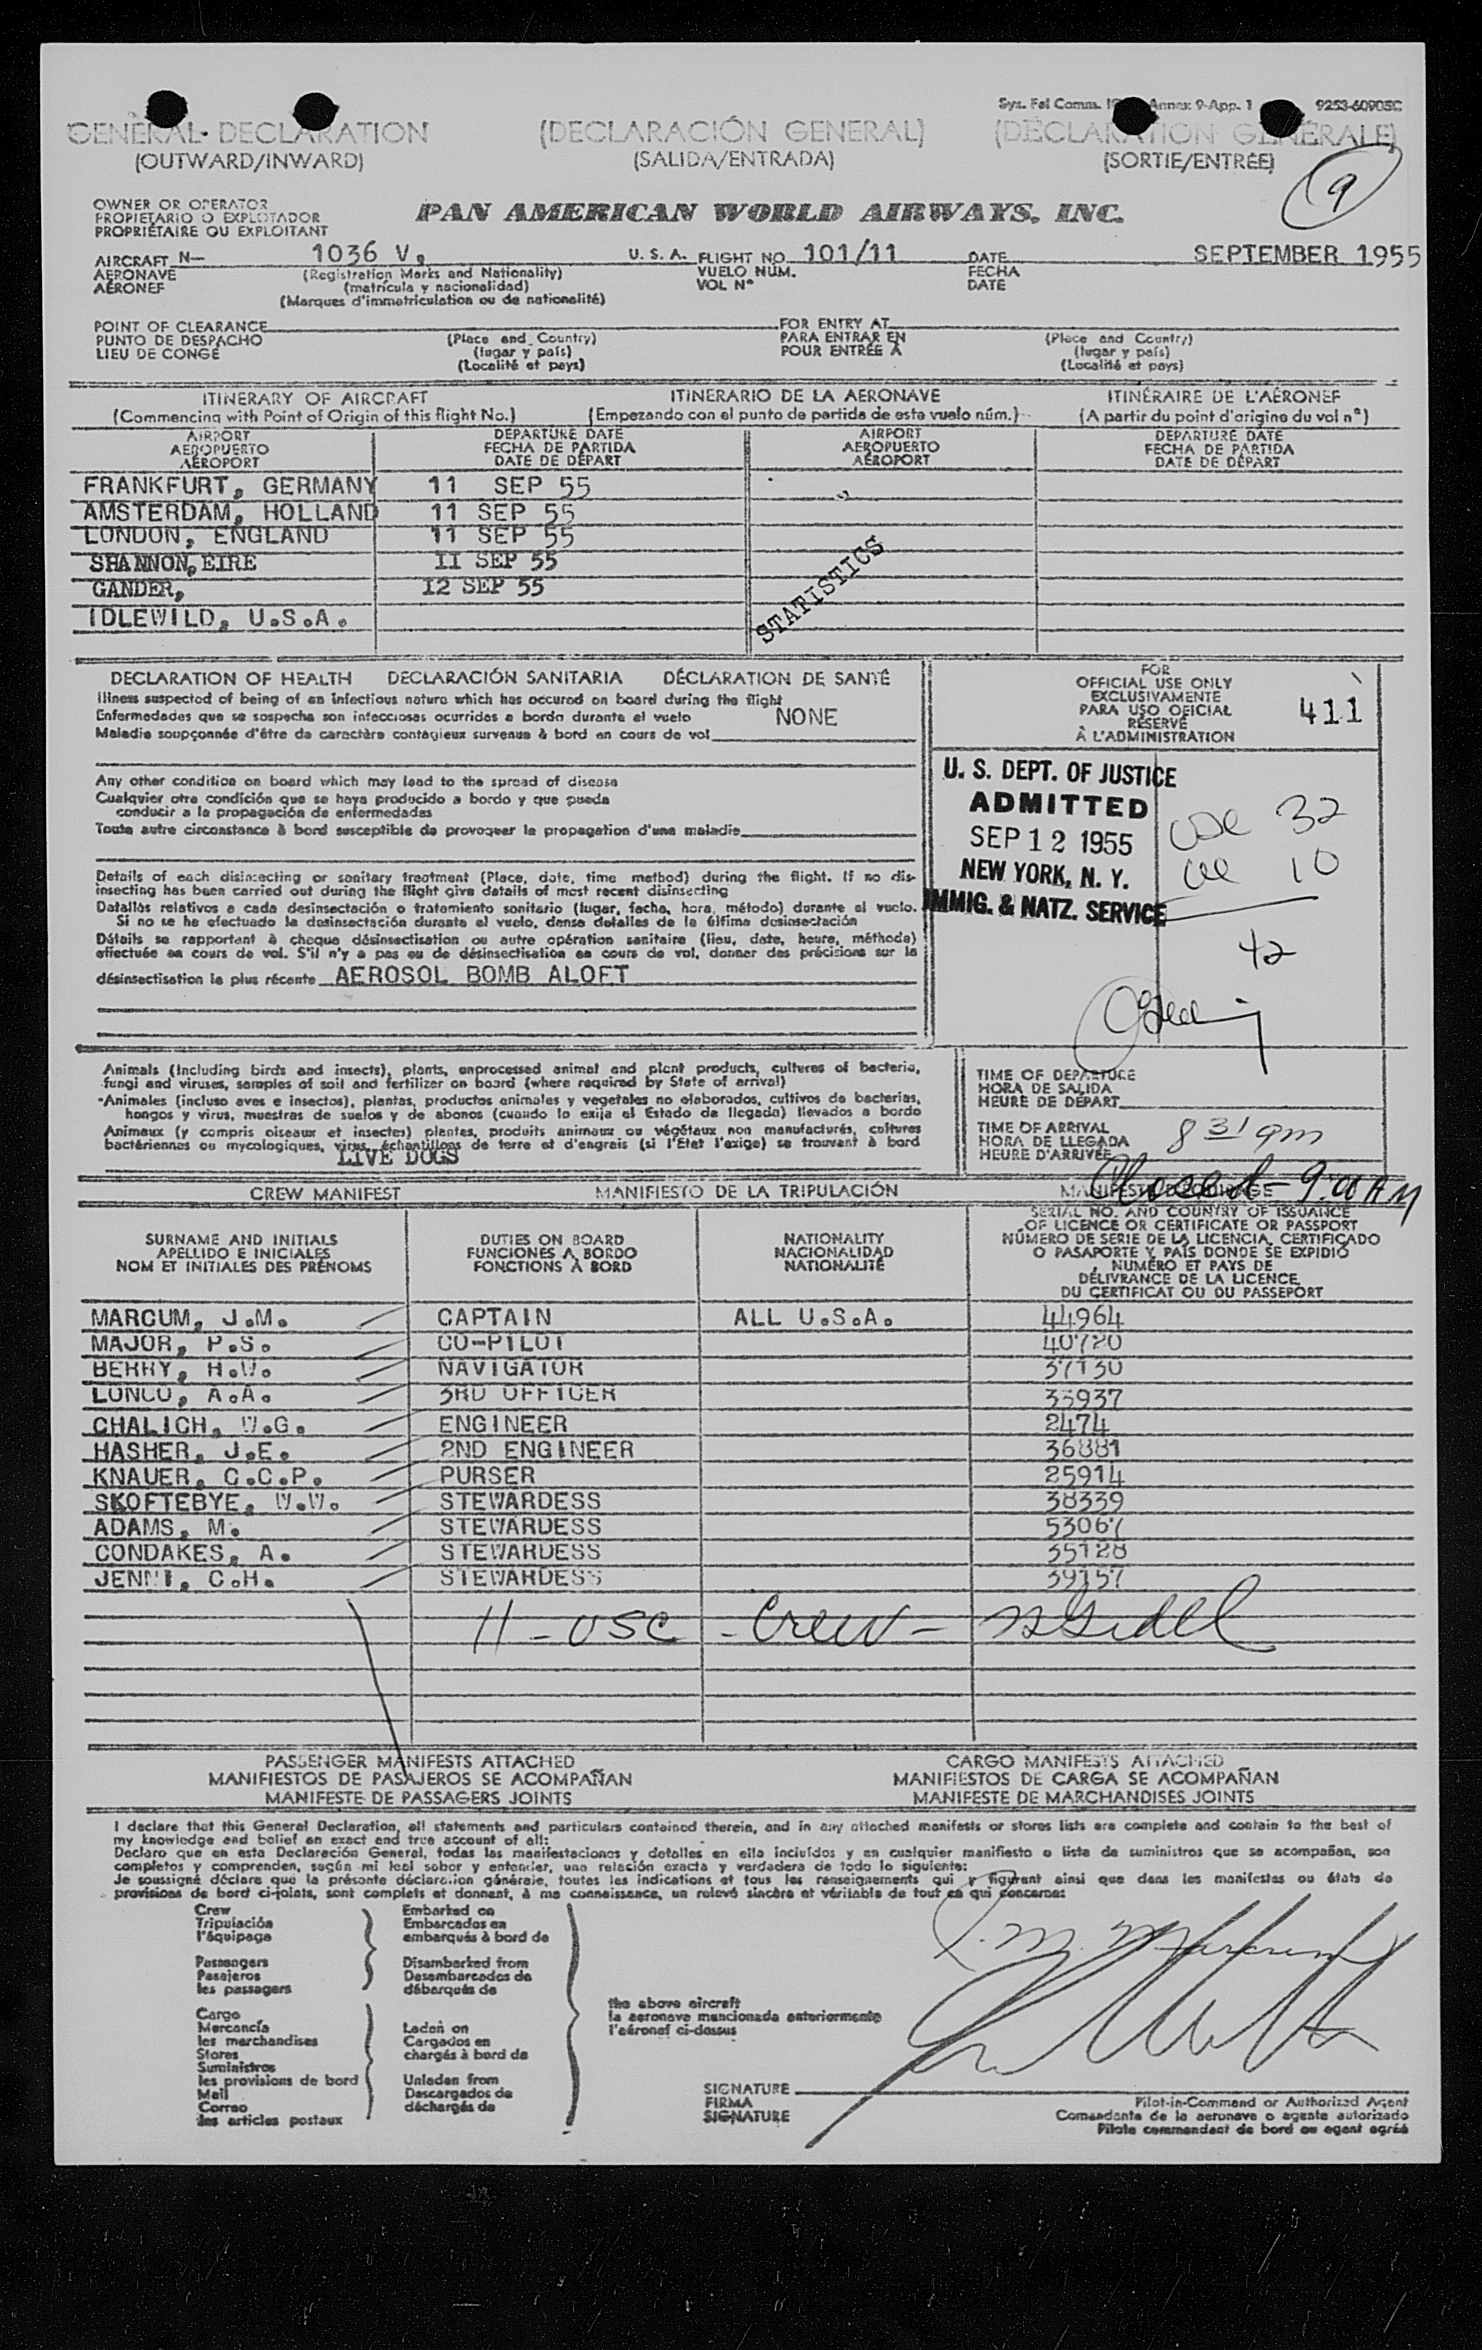 Sys. Fal Comm. Annex 9-App. 1 9253-6090SC
GENERAL DECLARATION (DECLARACIÓN GENERAL) (DÉCLARATION GÉNÉRALE)
(OUTWARD/INWARD) (SALIDA/ENTRADA) (SORTIE/ENTRÉE)
9
OWNER OR OPERATOR
PROPIETARIO O EXPLOTADOR
PROPRIÉTAIRE OU EXPLOITANT
PAN AMERICAN WORLD AIRWAYS, INC.
AIRCRAFT N— 1036 V. U. S. A. FLIGHT NO. 101/11 DATE SEPTEMBER 1955
AERONAVE (Registration Marks and Nationality) VUELO NÚM. FECHA
AÉRONEF (matrícula y nacionalidad) VOL N° DATE
(Marques d'immatriculation ou de nationalité)
POINT OF CLEARANCE FOR ENTRY AT
PUNTO DE DESPACHO (Place and Country) PARA ENTRAR EN (Place and Country)
LIEU DE CONGÉ (lugar y país) POUR ENTRÉE À (lugar y país)
(Localité et pays) (Localité et pays)
ITINERARY OF AIRCRAFT ITINERARIO DE LA AERONAVE ITINÉRAIRE DE L'AÉRONEF
(Commencing with Point of Origin of this flight No.) (Empezando con el punto de partida de este vuelo núm.) (A partir du point d'origine du vol n°)
AIRPORT DEPARTURE DATE AIRPORT DEPARTURE DATE
AEROPUERTO FECHA DE PARTIDA AEROPUERTO FECHA DE PARTIDA
AÉROPORT DATE DE DÉPART AÉROPORT DATE DE DÉPART
FRANKFURT, GERMANY 11 SEP 55
AMSTERDAM, HOLLAND 11 SEP 55
LONDON, ENGLAND 11 SEP 55
SHANNON, EIRE 11 SEP 55
GANDER, 12 SEP 55
IDLEWILD, U.S.A.
STATISTICS
DECLARATION OF HEALTH DECLARACIÓN SANITARIA DÉCLARATION DE SANTÉ
Illness suspected of being of an infectious nature which has occured on board during the flight
Enfermedades que se sospecha son infecciosas ocurridas a bordo durante el vuelo NONE
Maladie soupçonnée d'être de caractère contagieux survenue à bord en cours de vol
Any other condition on board which may lead to the spread of disease
Cualquier otra condición que se haya producido a bordo y que pueda
conducir a la propagación de enfermedades
Toute autre circonstance à bord susceptible de provoquer la propagation d'une maladie
Details of each disinsecting or sanitary treatment (Place, date, time method) during the flight. If no dis-
insecting has been carried out during the flight give details of most recent disinsecting
Detallès relativos a cada desinsectación o tratamiento sanitario (lugar, fecha, hora, método) durante el vuelo.
Si no se ha efectuado la desinsectación durante el vuelo, dense detalles de la última desinsectación
Détails se rapportant à chaque désinsectisation ou autre opération sanitaire (lieu, date, heure, méthode)
effectuée en cours de vol. S'il n'y a pas eu de désinsectisation en cours de vol, donner des précisions sur la
désinsectisation la plus récente AEROSOL BOMB ALOFT
FOR
OFFICIAL USE ONLY
EXCLUSIVAMENTE
PARA USO OFICIAL
RÉSERVÉ
À L'ADMINISTRATION
411
U. S. DEPT. OF JUSTICE
ADMITTED
SEP 12 1955
NEW YORK, N. Y.
IMMIG. & NATZ. SERVICE
USC 32
10
42
Animals (Including birds and insects), plants, unprocessed animal and plant products, cultures of bacteria,
fungi and viruses, samples of soil and fertilizer on board (where required by State of arrival)
Animales (incluso aves e insectos), plantas, productos animales y vegetales no elaborados, cultivos de bacterias,
hongos y virus, muestras de suelos y de abonos (cuando lo exija el Estado de llegada) llevados a bordo
Animaux (y compris oiseaux et insectes) plantes, produits animaux ou végétaux non manufacturés, cultures
bactériennes ou mycologiques, virus, échantillons de terre et d'engrais (si l'État l'exige) se trouvant à bord
LIVE DOGS
TIME OF DEPARTURE
HORA DE SALIDA
HEURE DE DÉPART
TIME OF ARRIVAL
HORA DE LLEGADA
HEURE D'ARRIVÉE
8 31 am
Closed - 9:00 AM
CREW MANIFEST MANIFIESTO DE LA TRIPULACIÓN MANIFESTE D'ÉQUIPAGE
SURNAME AND INITIALS DUTIES ON BOARD NATIONALITY SERIAL NO. AND COUNTRY OF ISSUANCE
APELLIDO E INICIALES FUNCIONES A BORDO NACIONALIDAD OF LICENCE OR CERTIFICATE OR PASSPORT
NOM ET INITIALES DES PRÉNOMS FONCTIONS À BORD NATIONALITÉ NÚMERO DE SERIE DE LA LICENCIA, CERTIFICADO
O PASAPORTE Y PAÍS DONDE SE EXPIDIÓ
NUMÉRO ET PAYS DE
DÉLIVRANCE DE LA LICENCE,
DU CERTIFICAT OU DU PASSEPORT
MARCUM, J.M. CAPTAIN ALL U.S.A. 44964
MAJOR, P.S. CO-PILOT 40720
BERRY, H.W. NAVIGATOR 37130
LONCO, A.A. 3RD OFFICER 35937
CHALICH, W.G. ENGINEER 2474
HASHER, J.E. 2ND ENGINEER 36881
KNAUER, C.C.P. PURSER 25914
SKOFTEBYE, W.W. STEWARDESS 38339
ADAMS, M. STEWARDESS 53067
CONDAKES, A. STEWARDESS 35128
JENNI, C.H. STEWARDESS 39157
11 - USC - Crew -
PASSENGER MANIFESTS ATTACHED CARGO MANIFESTS ATTACHED
MANIFIESTOS DE PASAJEROS SE ACOMPAÑAN MANIFIESTOS DE CARGA SE ACOMPAÑAN
MANIFESTE DE PASSAGERS JOINTS MANIFESTE DE MARCHANDISES JOINTS
I declare that this General Declaration, all statements and particulars contained therein, and in any attached manifests or stores lists are complete and contain to the best of
my knowledge and belief an exact and true account of all:
Declaro que en esta Declaración General, todas las manifestaciones y detalles en ella incluídos y en cualquier manifiesto o lista de suministros que se acompañan, son
completos y comprenden, según mi leal saber y entender, una relación exacta y verdadera de todo lo siguiente:
Je soussigné déclare que la présente déclaration générale, toutes les indications et tous les renseignements qui y figurent ainsi que dans les manifestes ou états de
provisions de bord ci-joints, sont complets et donnent, à ma connaissance, un relevé sincère et véritable de tout ce qui concerne:
Crew Embarked on
Tripulación Embarcados en
l'équipage embarqués à bord de
Passengers Disembarked from
Pasajeros Desembarcados de
les passagers débarqués de
Cargo
Mercancía Laden on
les marchandises Cargados en
Stores chargés à bord de
Suministros
les provisions de bord Unladen from
Mail Descargados de
Correo déchargés de
les articles postaux
the above aircraft
la aeronave mencionada anteriormente
l'aéronef ci-dessus
J. M. Marcum
SIGNATURE Pilot-in-Command or Authorized Agent
FIRMA Comandante de la aeronave o agente autorizado
SIGNATURE Pilote commandant de bord ou agent agréé